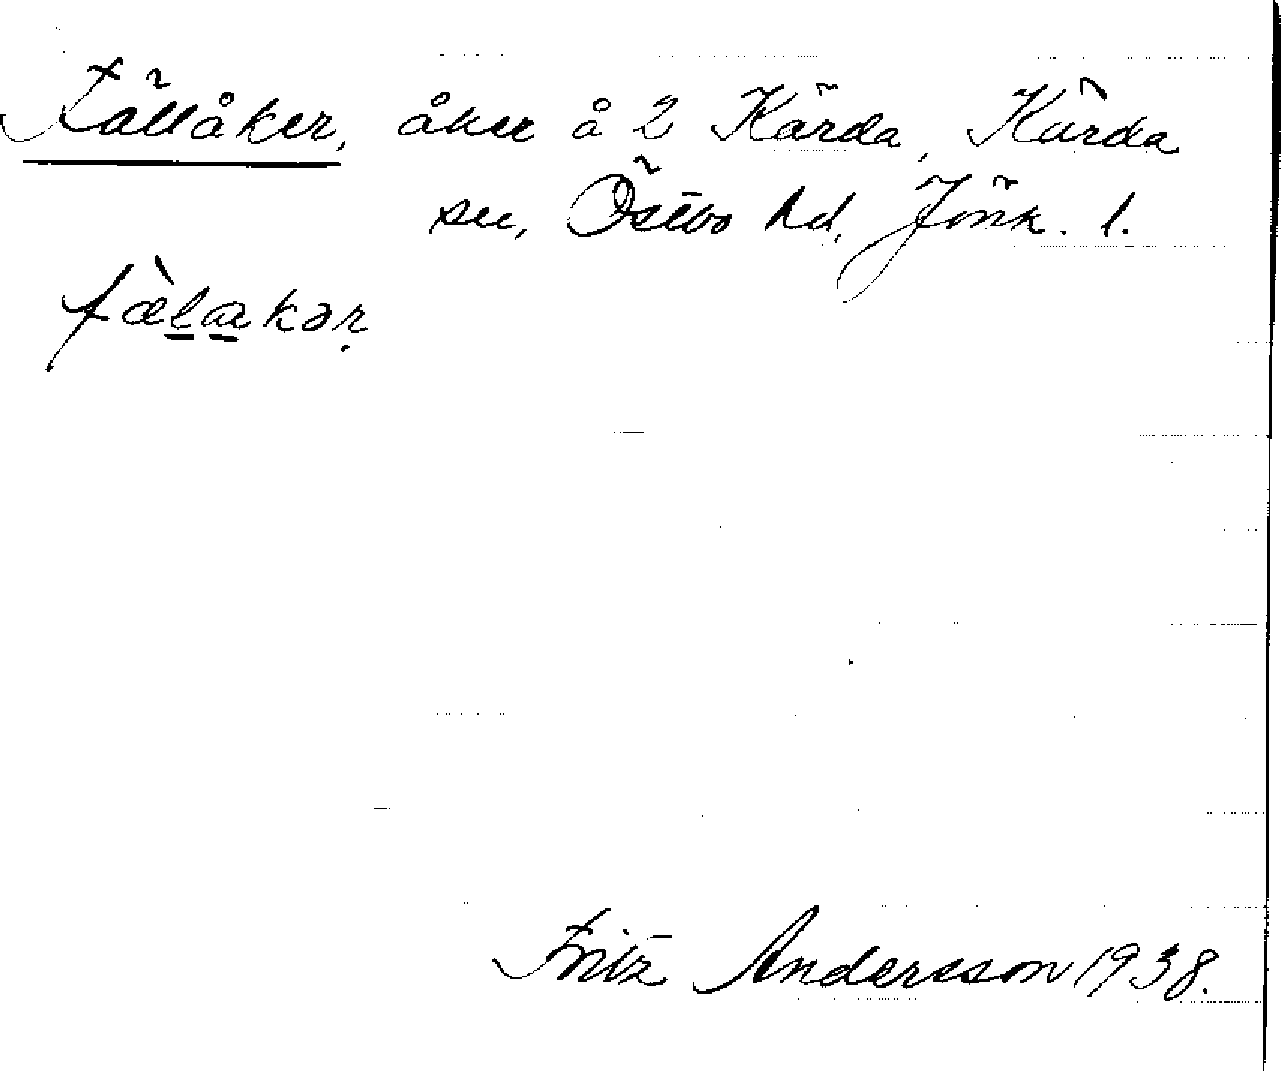 Fällåker, åker å 2 Kärda, Kärda
sn, Östbo hd, Jönk. l.
fæ̀lakər
Fritz Andersson 1938.